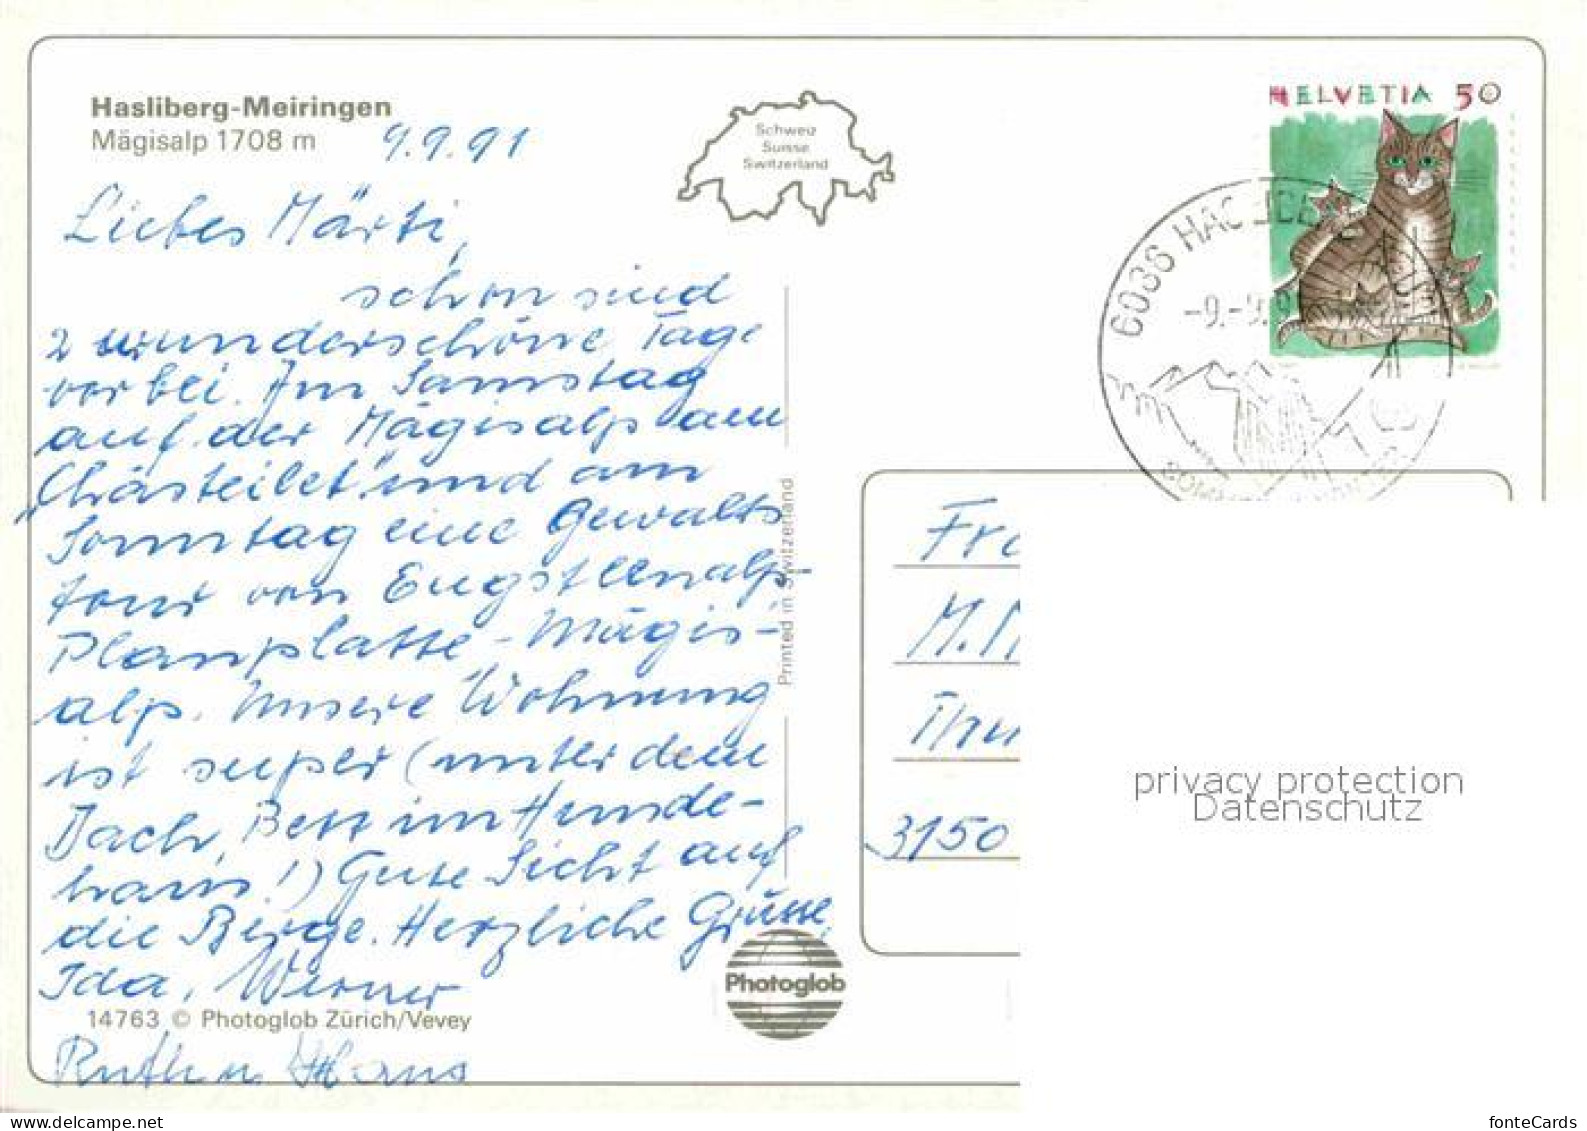 Hasliberg-Meiringen
Mägisalp 1708 m
9.9.91
Schweiz
Suisse
Switzerland
HELVETIA 50
6036 HAS
-9.-9.9
Liebes Märti,
schon sind
2 wunderschöne Tage
vorbei. Am Samstag
auf der Mägisalp am
„Chästeilet" und am
Sonntag eine Gewalts
tour von Engstlenalp-
Planplatte - Mägis-
alp. Unsere Wohnung
ist super (unter dem
Dach, Bett im Hunde-
haus!) Gute Sicht auf
die Berge. Herzliche Grüsse,
Ida, Werner
14763 © Photoglob Zürich/Vevey
Ruth u. Hans
Printed in Switzerland
Photoglob
Fra
M.
Thu
3150
privacy protection
Datenschutz
fonteCards